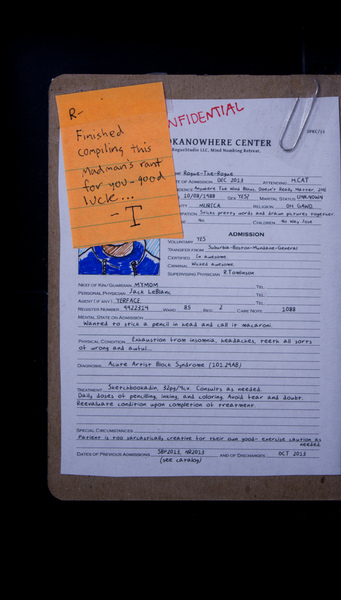 R-
Finished
compiling this
Madman's rant
for you-good
luck...
-T
NFIDENTIAL
OKANOWHERE CENTER
RogueStudio LLC, Mind Numbing Retreat.
ME Rogue-The-Rogue
TE OF ADMISSION DEC 2013 ATTENDING M.CAT
10/08/1988 SEX YES/ MARITAL STATUS UNKNOWN
MURICA RELIGION OH GAWD
PATION Sticks pretty words and drawn pictures together
No CHILDREN No way Jose
ADMISSION
VOLUNTARY YES
TRANSFER FROM Suburbia-Boston-Mundane-General
CERTIFIED In awesome
CRIMINAL Wicked awesome
SUPERVISING PHYSICIAN R.Tomlinson
NEXT OF KIN / GUARDIAN MYMOM TEL
PERSONAL PHYSICIAN Jack LeBlanc TEL
AGENT (IF ANY) YERFACE TEL
REGISTER NUMBER 4422314 WARD RS BED 2 CARE NOTE 1088
MENTAL STATE ON ADMISSION
Wanted to stick a pencil in head and call it macaroni.
PHYSICAL CONDITION Exhaustion from insomnia, headaches, teeth all sorts
of wrong and awful...
DIAGNOSIS Acute Artist Block Syndrome (101.24AB)
TREATMENT Sketchbookadin, 32pg/4cx. Consults as needed.
Daily doses of pencilling, inking, and coloring. Avoid fear and doubt.
Reevaluate condition upon completion of treatment
SPECIAL CIRCUMSTANCES
Patient is too sarcastically creative for their own good- exercise caution as
needed
DATES OF PREVIOUS ADMISSIONS SBP2013, NR2013 AND OF DISCHARGES OCT 2013
(see catalog)